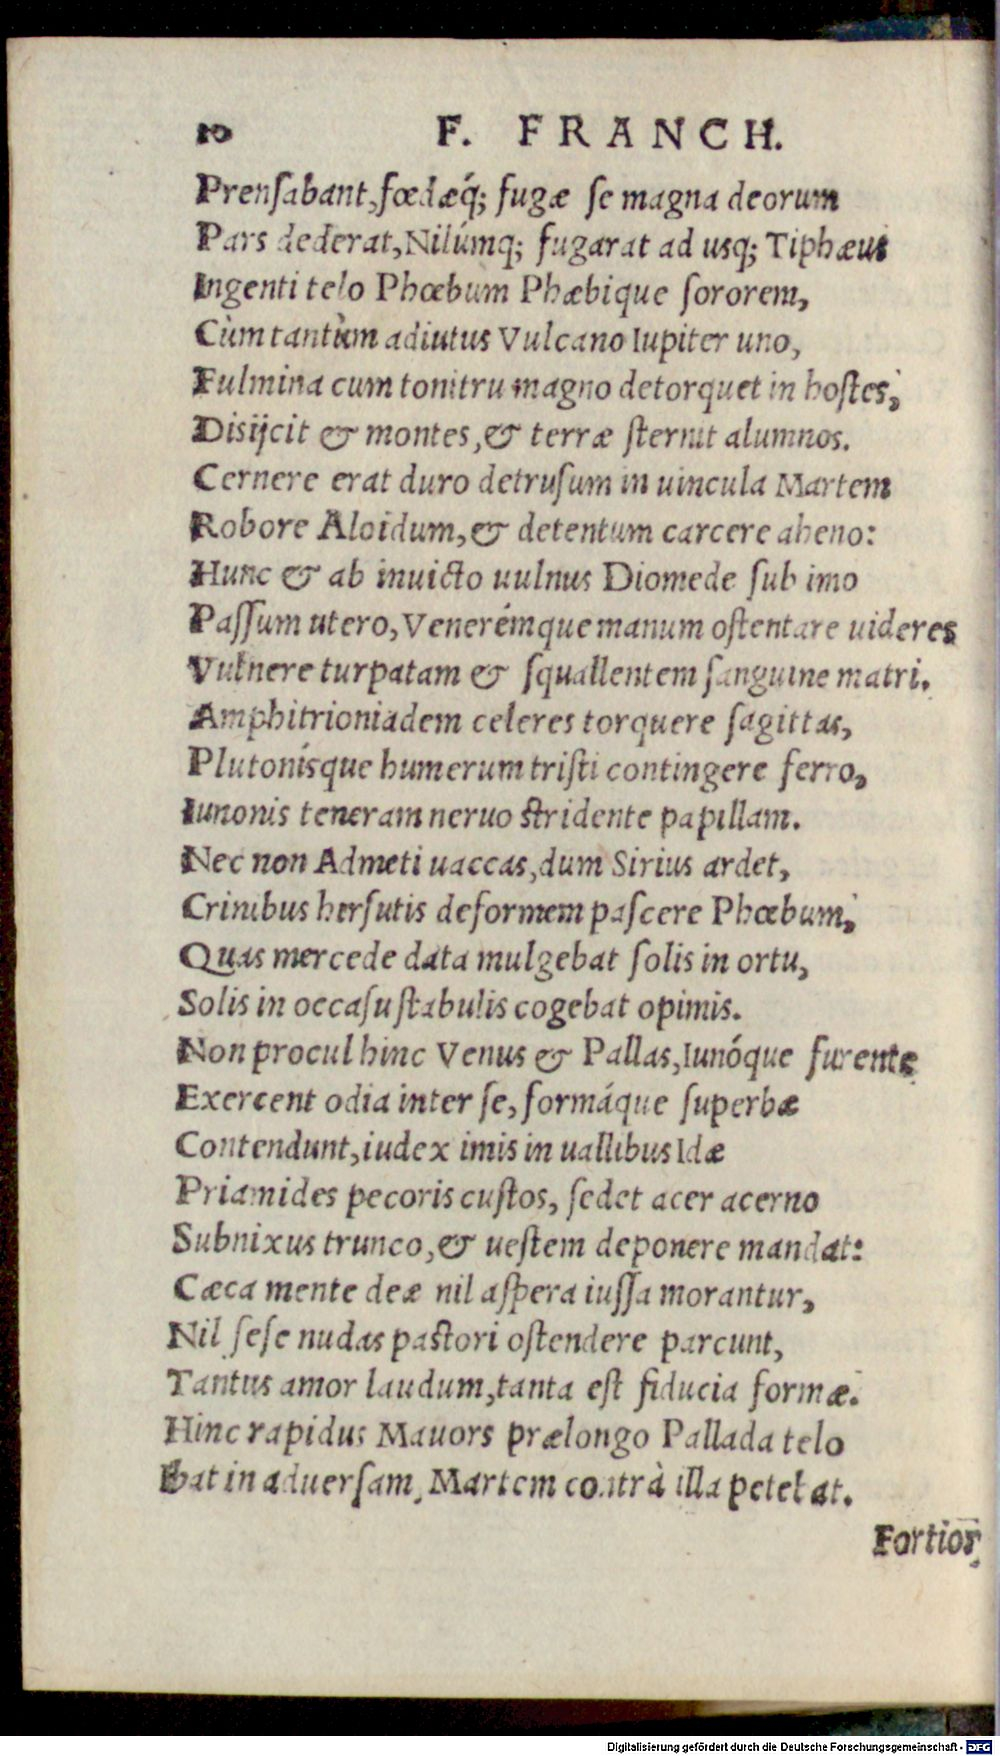 10 F. FRANCH.
Prenſabant, fœdæq́; fugæ ſe magna deorum
Pars dederat, Nilúmq; fugarat ad usq; Tiphæus
Ingenti telo Phœbum Phæbique ſororem,
Cùm tantùm adiutus Vulcano Iupiter uno,
Fulmina cum tonitru magno detorquet in hoſtes,
Disijcit & montes, & terræ ſternit alumnos.
Cernere erat duro detruſum in uincula Martem
Robore Aloidum, & detentum carcere aheno:
Hunc & ab inuicto uulnus Diomede ſub imo
Paſſum utero, Venerémque manum oſtentare uideres
Vulnere turpatam & ſquallentem ſanguine matri.
Amphitrioniadem celeres torquere ſagittas,
Plutonísque humerum triſti contingere ferro,
Iunonis teneram neruo ſtridente papillam.
Nec non Admeti uaccas, dum Sirius ardet,
Crinibus hirſutis deformem paſcere Phœbum,
Quas mercede data mulgebat ſolis in ortu,
Solis in occaſu ſtabulis cogebat opimis.
Non procul hinc Venus & Pallas, Iunóque furente
Exercent odia inter ſe, formáque ſuperbæ
Contendunt, iudex imis in uallibus Idæ
Priamides pecoris cuſtos, ſedet acer acerno
Subnixus trunco, & ueſtem deponere mandat:
Cæca mente deæ nil aſpera iuſſa morantur,
Nil ſeſe nudas paſtori oſtendere parcunt,
Tantus amor laudum, tanta eſt fiducia formæ.
Hinc rapidus Mauors prælongo Pallada telo
Ibat in aduerſam, Martem contrà illa petebat.
Fortior
Digitalisierung gefördert durch die Deutsche Forschungsgemeinschaft - DFG